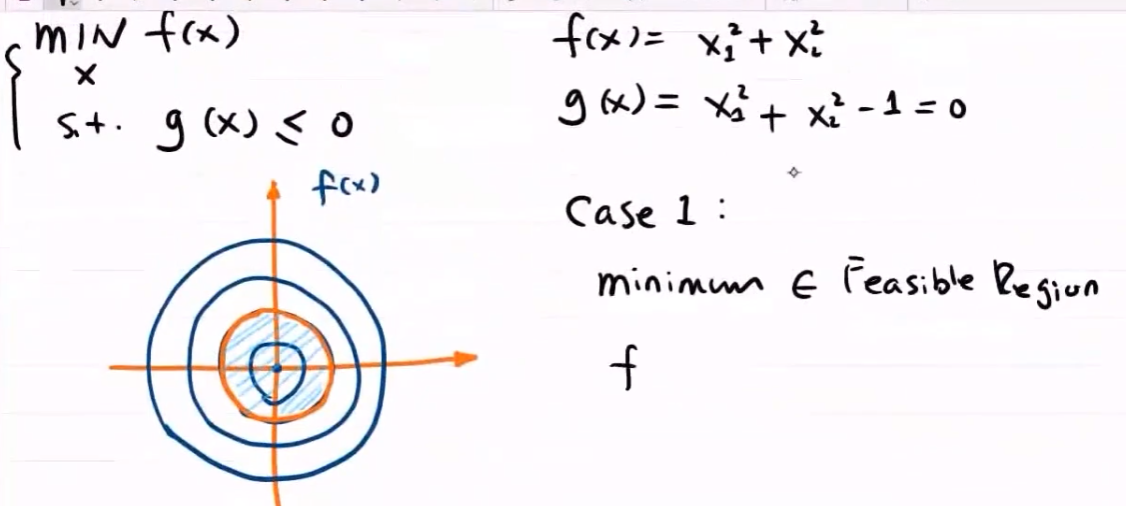 min f(x)
x
s.t. g(x) ≤ 0
f(x) = x₁² + x₂²
g(x) = x₁² + x₂² - 1 = 0
f(x)
Case 1 :
minimum ∈ Feasible Region
f